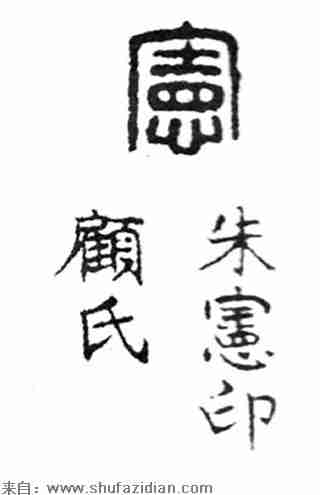 憲
朱憲印
顧氏
来自：www.shufazidian.com